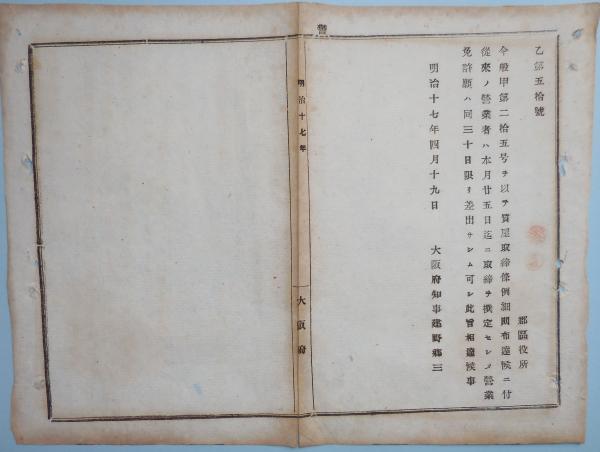 乙第五拾號
郡區役所
今般甲第二拾五号ヲ以テ質屋取締條例細則布達候ニ付
從來ノ營業者ハ本月廿五日迄ニ取締ヲ撰定セシメ營業
免許願ハ同三十日限リ差出サシム可シ此旨相達候事
明治十七年四月十九日
大阪府知事建野鄕三
警
明治十七年
大阪府